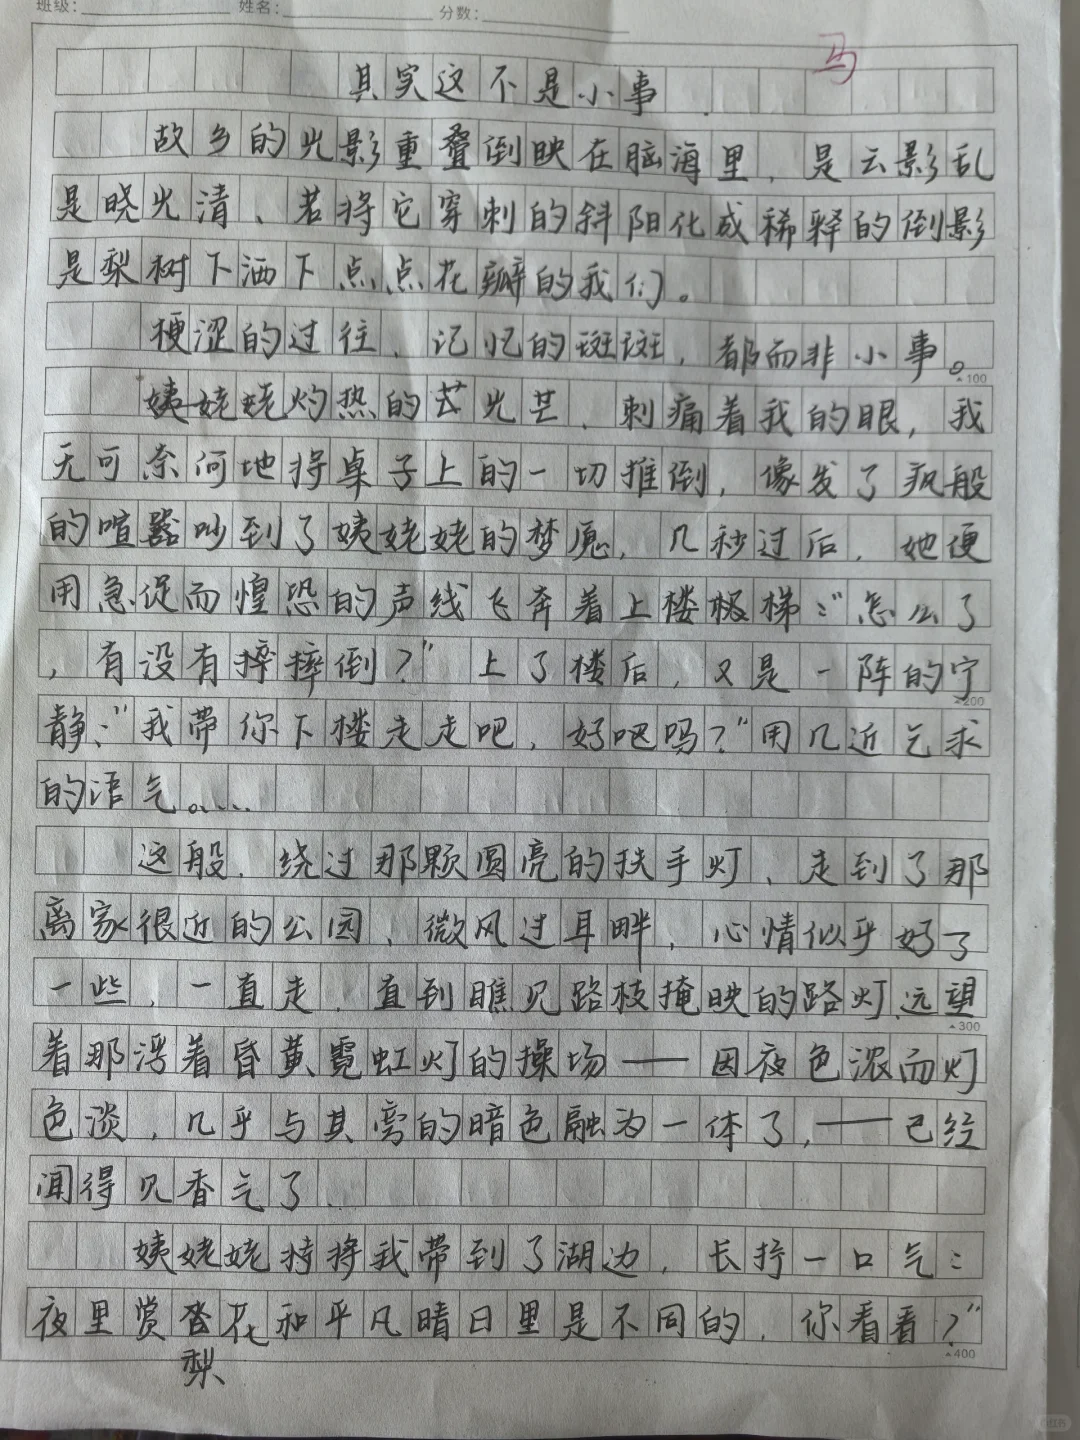 班级: 姓名: 分数:
马
其实这不是小事
故乡的光影重叠倒映在脑海里，是云影乱
是晓光清、若将它穿刺的斜阳化成稀释的倒影
是梨树下洒下点点花瓣的我们。
梗涩的过往，记忆的斑斑，都而非小事。
▲100
姨姥姥灼热的芒光芒，刺痛着我的眼，我
无可奈何地将桌子上的一切推倒，像发了疯般
的喧嚣吵到了姨姥姥的梦魇，几秒过后，她便
用急促而惶恐的声线飞奔着上楼梯：“怎么了
，有没有摔摔倒？”上了楼后，又是一阵的宁
▲200
静：“我带你下楼走走吧，好吧吗？”用几近乞求
的语气。...
这般，绕过那颗圆亮的扶手灯，走到了那
离家很近的公园，微风过耳畔，心情似乎好了
一些，一直走，直到瞧见路枝掩映的路灯，远望
▲300
着那湾着昏黄霓虹灯的操场——因夜色浓而灯
色淡，几乎与其旁的暗色融为一体了，——已经
闻得见香气了
姨姥姥将我带到了湖边，长拧一口气：
夜里赏花和平凡晴日里是不同的，你看看？”
▲400
梨